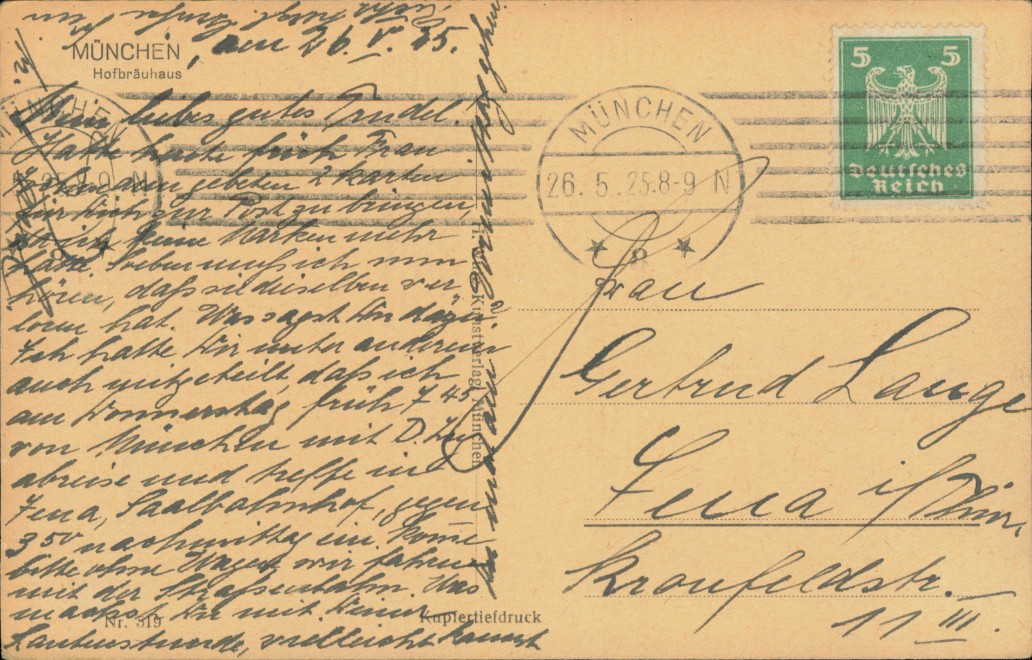 MÜNCHEN
Hofbräuhaus
, den 26. V. 25.
Mein liebes gutes Trudel.
Hatte heute früh Frau
gebeten 2 Karten
für Dich zur Post zu bringen,
da ich keine Marken mehr
hatte. Soeben muss ich nun
hören, dass sie dieselben ver-
loren hat. Was sagst Du dazu?
Ich hatte Dir unter anderem
auch mitgeteilt, dass ich
am Donnerstag früh 7 45
von München mit D. Zug
abreise und treffe in
Jena, Saalbahnhof, gegen
3 50 nachmittag ein. Komme
bitte ohne Wagen wir fahren
mit der Strassenbahn. Was
machst Du mit Deiner
Lautenstunde, vielleicht kannst
Nr. 319
Kupfertiefdruck
Kunstverlag, München
MÜNCHEN
26. 5. 25. 8-9 N
5 5
Deutsches
Reich
Frau
Gertrud Lange
Jena i/Thür.
Kronfeldstr.
11 III.